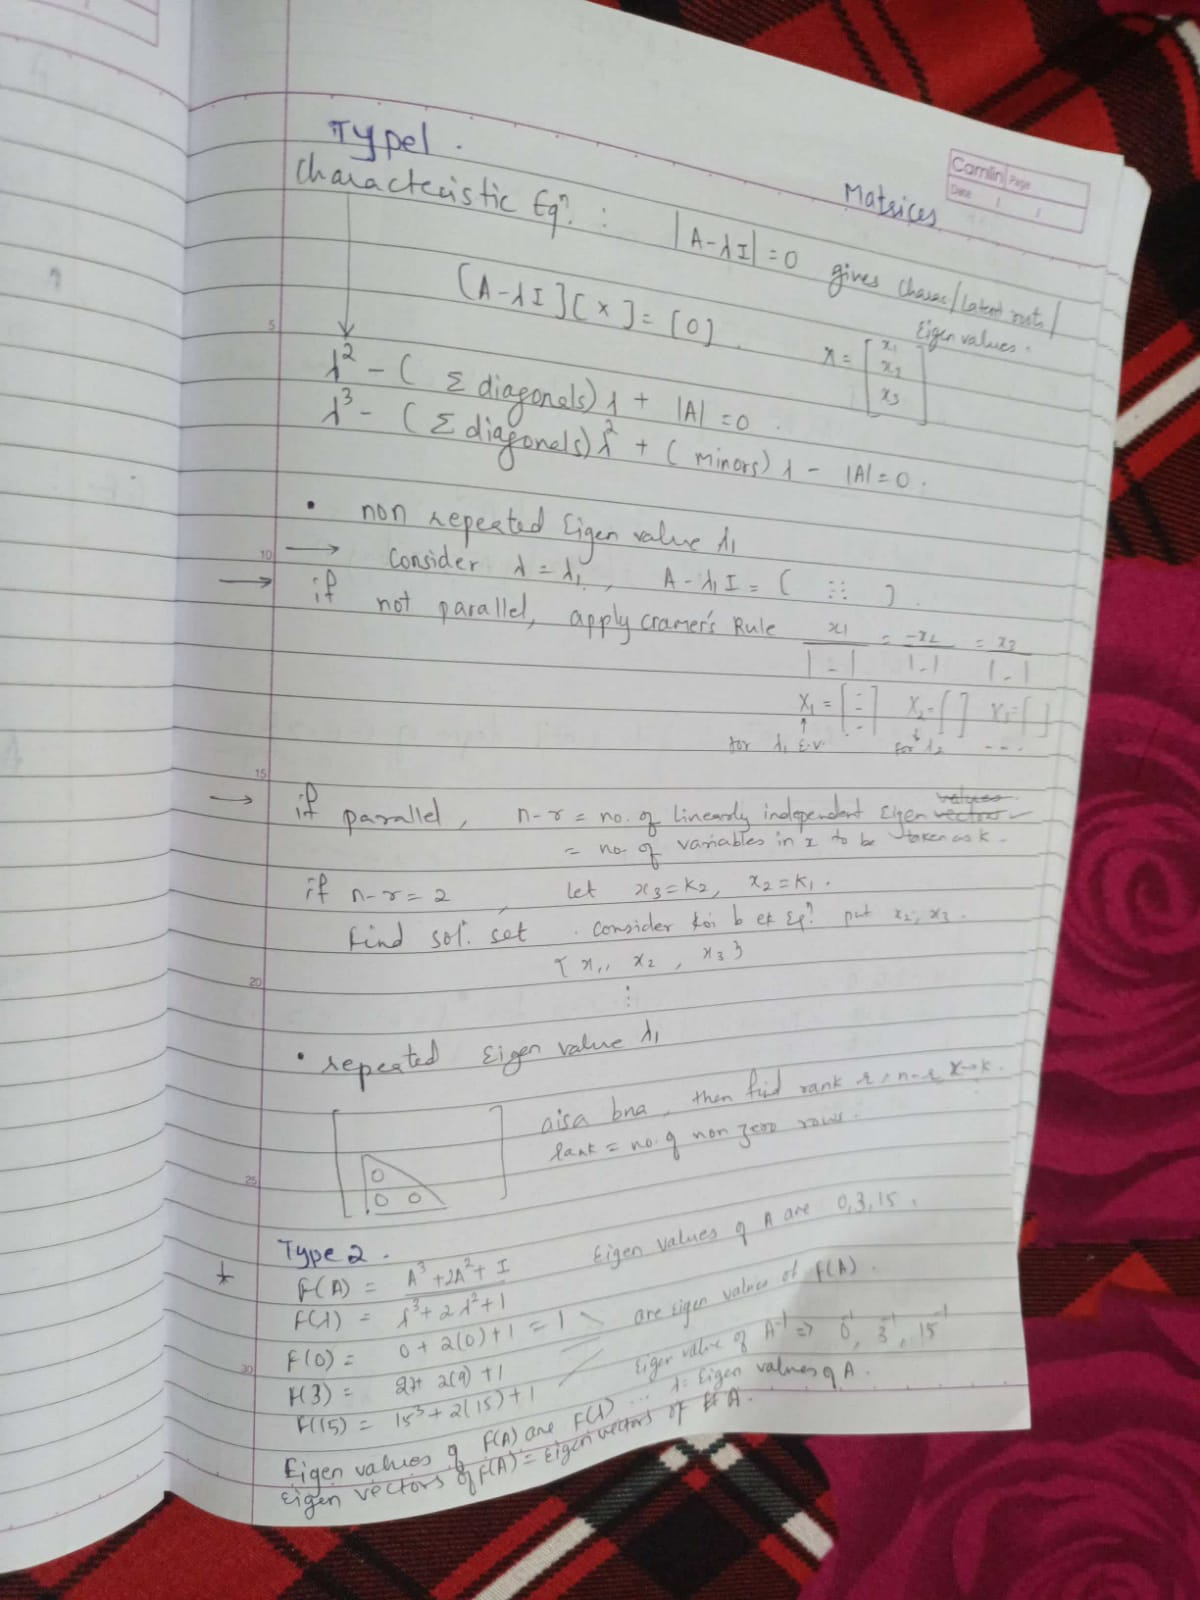 Camlin Page
Date / /
Matrices
Type 1.
Characteristic Eqn. : |A-λI| = 0 gives Charac/Latent roots/
Eigen values.
[A-λI][x] = [0].
x = [x1 x2 x3]
λ² - (Σ diagonals) λ + |A| = 0.
λ³ - (Σ diagonals) λ² + (minors) λ - |A| = 0.
• non repeated Eigen value λ1
→ Consider λ = λ1, A - λ1 I = [ ::: ].
→ if not parallel, apply cramer's Rule x1/|-| = -x2/|-| = x3/|-|
X1 = [ ] X2 = [ ] X3 = [ ]
for λ1 E.V. for λ2 ----
→ if parallel, n-r = no. of linearly independent Eigen values vectors
= no. of variables in x to be taken as k.
if n-r = 2, let x3 = k2, x2 = k1.
Find sol. set . Consider koi b ek Eqn put x2, x3.
{ x1, x2, x3 }
⋮
• repeated Eigen value λ1
aisa bna, then find rank r, n-r x→k.
rank = no. of non zero rows.
0
0 0
Type 2.
Eigen values of A are 0, 3, 15.
F(A) = A³ + 2A² + I
F(λ) = λ³ + 2λ² + 1
F(0) = 0 + 2(0) + 1 = 1
are eigen values of F(A).
F(3) = 27 + 2(9) + 1
Eigen value of A⁻¹ => 0⁻¹, 3⁻¹, 15⁻¹
F(15) = 15³ + 2(15) + 1
Eigen values of F(A) are F(λ) ... λ: Eigen values of A.
Eigen vectors of F(A) = Eigen vectors of A.
5
10
15
20
25
30